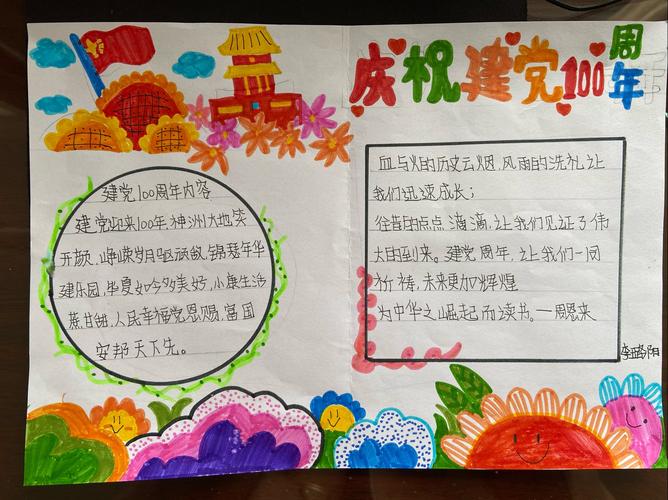 庆祝建党100周年
建党100周年内容
建党迎来100年,神洲大地笑
开颜,峥嵘岁月呕画献,锦瑟年华
建乐园,华夏如今多美好,小康生活
蔗甘甜,人民幸福党恩赐,富国
安邦天下先。
血与火的历史云烟,风雨的洗礼让
我们迅速成长;
往昔的点点滴滴,让我们见证了伟
大的到来。建党周年,让我们一同
祈祷,未来更加辉煌
为中华之崛起而读书。一周恩来
李
阳